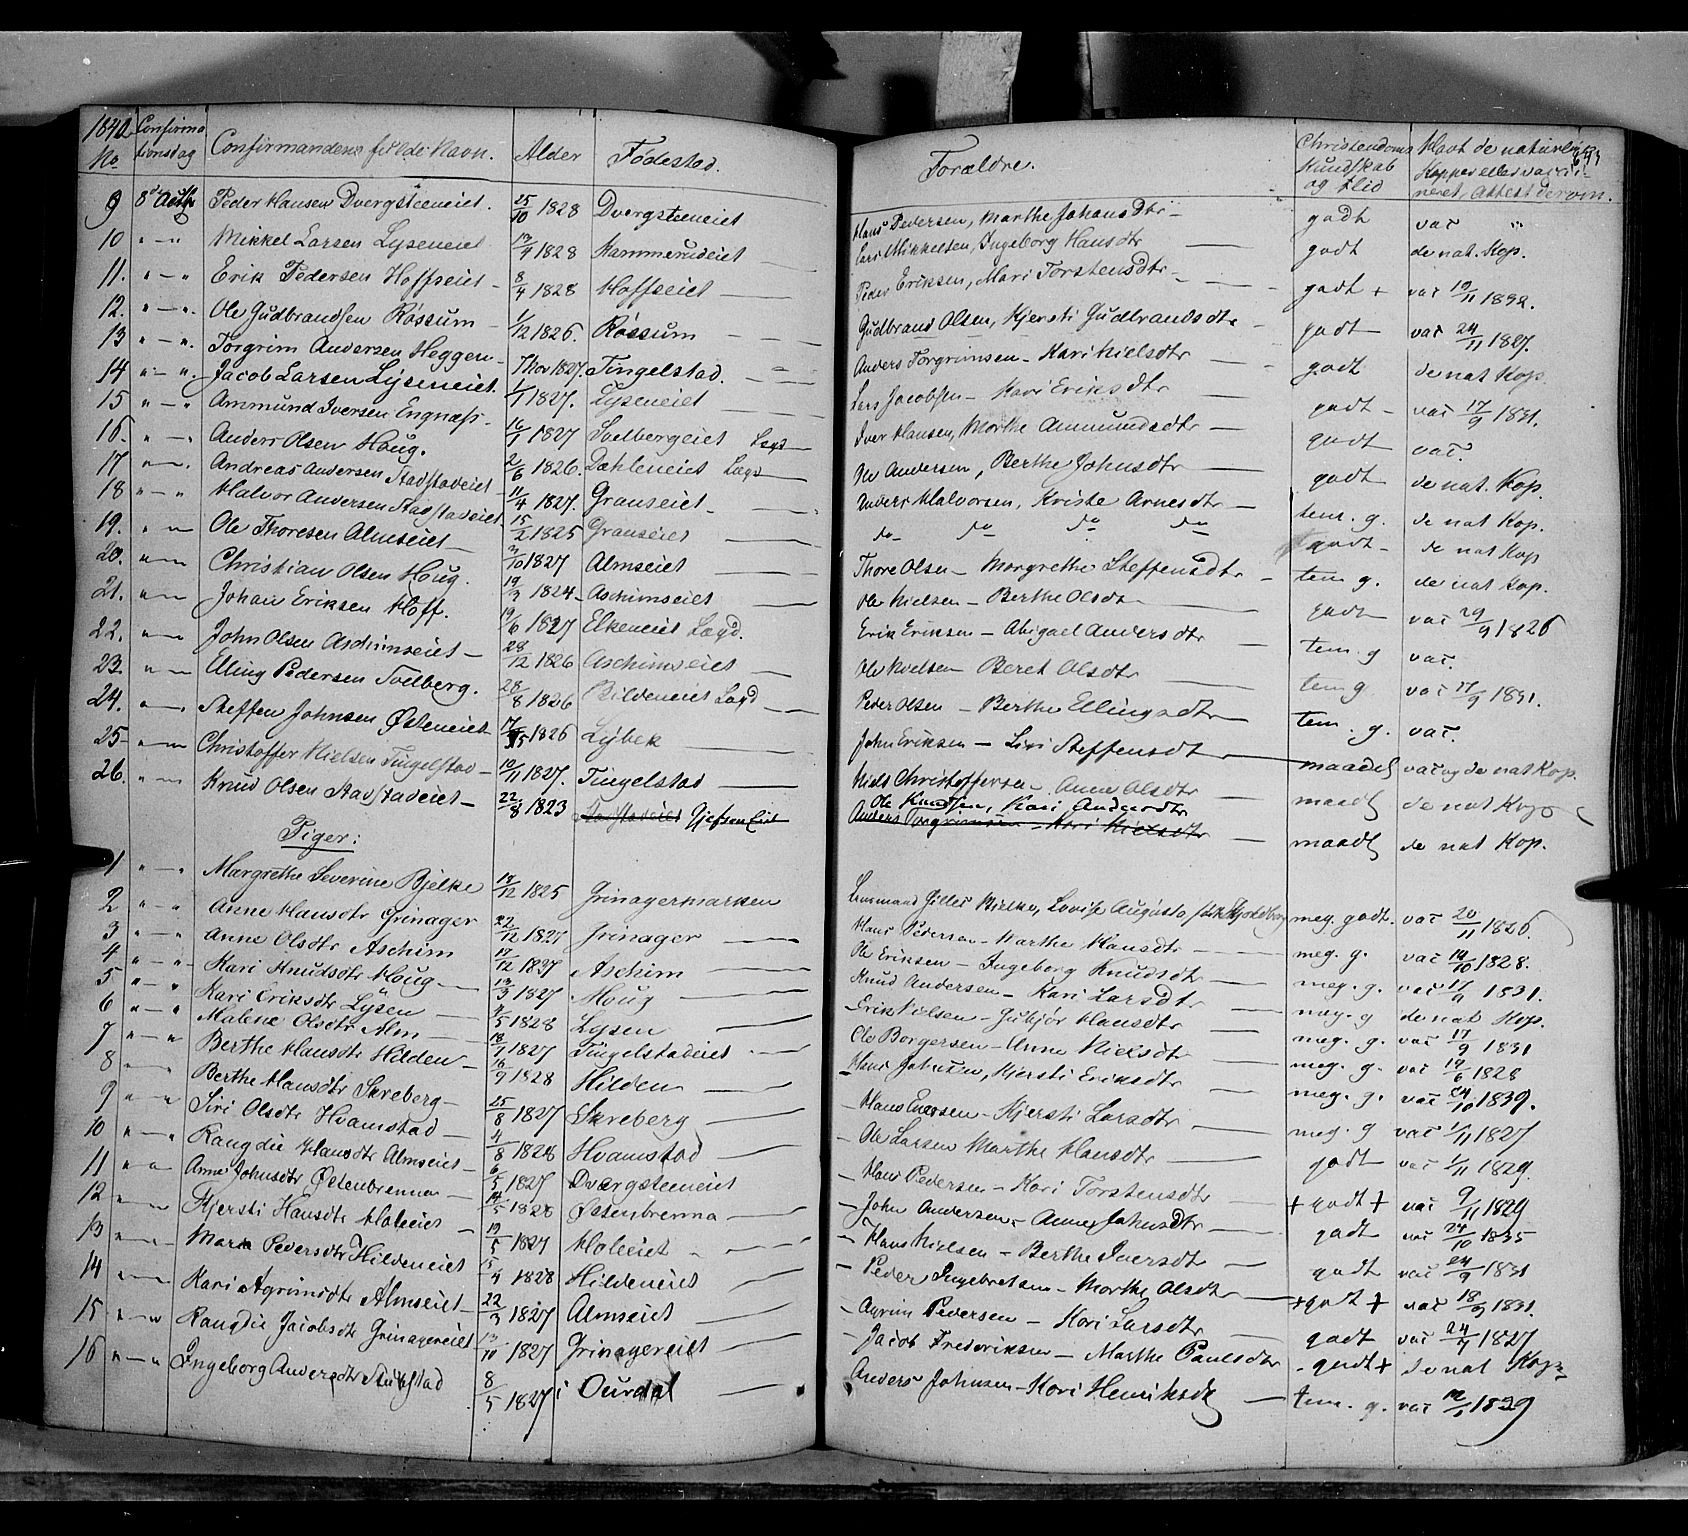 1842. Confirmationsdag Confirmandens fulde Navn. Alder Fødestad. Forældre. Christendoms Kundskab og Flid Havt de naturlige Kopper eller vaccineret, Attest derom.
No
9 8de Peder Hansen Dvergsteeneiet. 25/10 1828 Dvergsteeneiet Hans Pedersen, Marthe Johansdtr godt vac "
10 " — " Mikkel Larsen Lyseneiet 1828 Kammerudeiet Lars Mikkelsen, Ingeborg Hansdtr godt de nat. Kop.
11. " — " Erik Pedersen Hoffseiet 8/4 1828 Hoffseiet Peder Eriksen, Mari Torstensdtr godt + vac 19/11 1832.
12. " — " Ole Gudbrandsen Røssum 1/12 1826. Røssum Gudbrand Olsen, Kjersti Gudbrandsdtr godt vac 24/11 1827.
13 " — " Torgrim Andersen Heggen 7 Nov 1827. Tingelstad. Anders Torgrimsen — Kari Nielsdtr godt de nat Kop.
14 " — " Jacob Larsen Lyseneiet. 1827. Lyseneiet Lars Jacobsen — Kari Eriksdtr godt vac 17/9 1831.
15 " — " Ammund Iversen Engnæss 1827 Soelbergeiet Iver Hansen, Marthe Ammundsdtr godt vac.
16. " — " Anders Olsen Houg. 2/6 1826. Dæhleneiet Ole Andersen, Berthe Johnsdtr godt de nat. Kop.
17 " — " Andreas Andersen Stadstadeiet 11/4 1827. Granseiet Anders Halvorsen, Kristie Arnesdtr tem. g. de nat Kop.
18 " — " Halvor Andersen Stadstadeiet 15/2 1825 Granseiet do do do do godt de nat Kop
19. " — " Ole Thoresen Almseiet 1827 Almseiet Thore Olsen — Margrethe Steffensdtr tem g. de nat Kop.
20. " — " Christian Olsen Houg. 1824 Aschimseiet Ole Nielsen — Berthe Olsdtr godt vac 29/9 1826
21. " — " Johan Eriksen Hoff. 19/6 1827 Elkeneiet Erik Eriksen — Abigael Andersdtr tem. g vac.
22. " — " John Olsen Aschimseiet 28/12 1826 Aschimseiet Ole Beret Olsdtr tem g. vac 17/9 1831.
23. " — " Elling Pedersen Soelberg. 28/8 1826 Bildeneiet Peder Olsen — Berthe Ellingsdtr tem. g. vac.
24. " — " Steffen Johnsen Østeneiet 1826 Lybek John Eriksen — Siri Steffensdtr maadel vac og de nat Kop.
25 " — " Christoffer Nielsen Tingelstad 19/11 1827. Tingelstad Niels Christoffersen — Anne Olsdtr maadl de nat Kop
26. " — " Knud Olsen Stadstadeiet 22/8 1823 Stadstadeiet Gjefsen Eiet Ole Knudsen, Kari Andersdtr maadl de nat Kop.
Anders Torgrimsen — Kari Nielsdtr
Piger:
1 " — " Margrethe Severine Bjelke 1825 Grinagermarken Gilles Bielke, Lovise Augusta meg. godt. vac 20/11 1826.
2 " — " Anne Hansdtr Grinager 22/12 1827 Grinager Hans Pedersen — Marthe Hansdtr meg. g. vac 14/10 1828.
3 " — " Anne Olsdtr Aschim 17/12 1827 Aschim Ole Eriksen — Ingeborg Knudsdtr meg. g. vac 1831.
4 " — " Kari Knudsdtr Houg 1827 Houg Knud Andersen — Kari Larsdtr meg. g de nat Kop.
5 " — " Kari Eriksdtr Lysen 1828 Lysen Erik Nielsen — Gubjør Hansdtr meg. g. vac 17/9 1831
6 " — " Malene Olsdtr Alm 1827 Tingelstadeiet Ole Borgersen — Anne Nielsdtr meg. g. vac 19/6 1828
7 " — " Berthe Hansdtr Hilden 1828 Hilden Hans Johnsen, Kjersti Eriksdtr meg. g. vac 24/10 1839.
8 " — " Berthe Hansdtr Skreberg 25/8 1827 Skreberg Hans Larsdtr meg. g vac 1/11 1827
9 " — " Siri Olsdtr Hvamstad 4/8 1828 Hvamstad Ole Larsen Marthe Hansdtr godt vac 1/11 1829.
10 " — " Rangdie Hansdtr Almseiet 6/5 1827 Dvergsteeneiet Hans Pedersen — Kari Torstensdtr + godt + vac 9/11 1829
11 " — " Anne Johnsdtr Østenbrenna 14/5 1828 Østenbrenna John Andersen — Anne Johnsdtr godt vac 24/10 1835
12 " — " Kjersti Hansdtr Holeeiet 19/5 1827 Holeeiet Hans Nielsen — Berthe Iversdtr godt vac 24/9 1831
13 " — " Mari Pedersdtr Hildeneiet 5/4 1828 Hildeneiet Peder Ingebretsen — Marthe Olsdtr + godt + vac 18/9 1831.
14 " — " Kari Agrimsdtr Almseiet 22/3 1827 Almseiet Agrim Pedersen — Kari Larsdtr godt vac 1827
15 " — " Rangdie Jacobsdtr Grinagereiet 13/10 1827 Grinagereiet Jacob Frederiksen — Marthe Paulsdtr godt + de nat Kop
16 " — " Ingeborg Andersdtr 8/5 1827 i Ourdal Anders Johnsen — Kari Henriksdtr tem. g. vac 1829